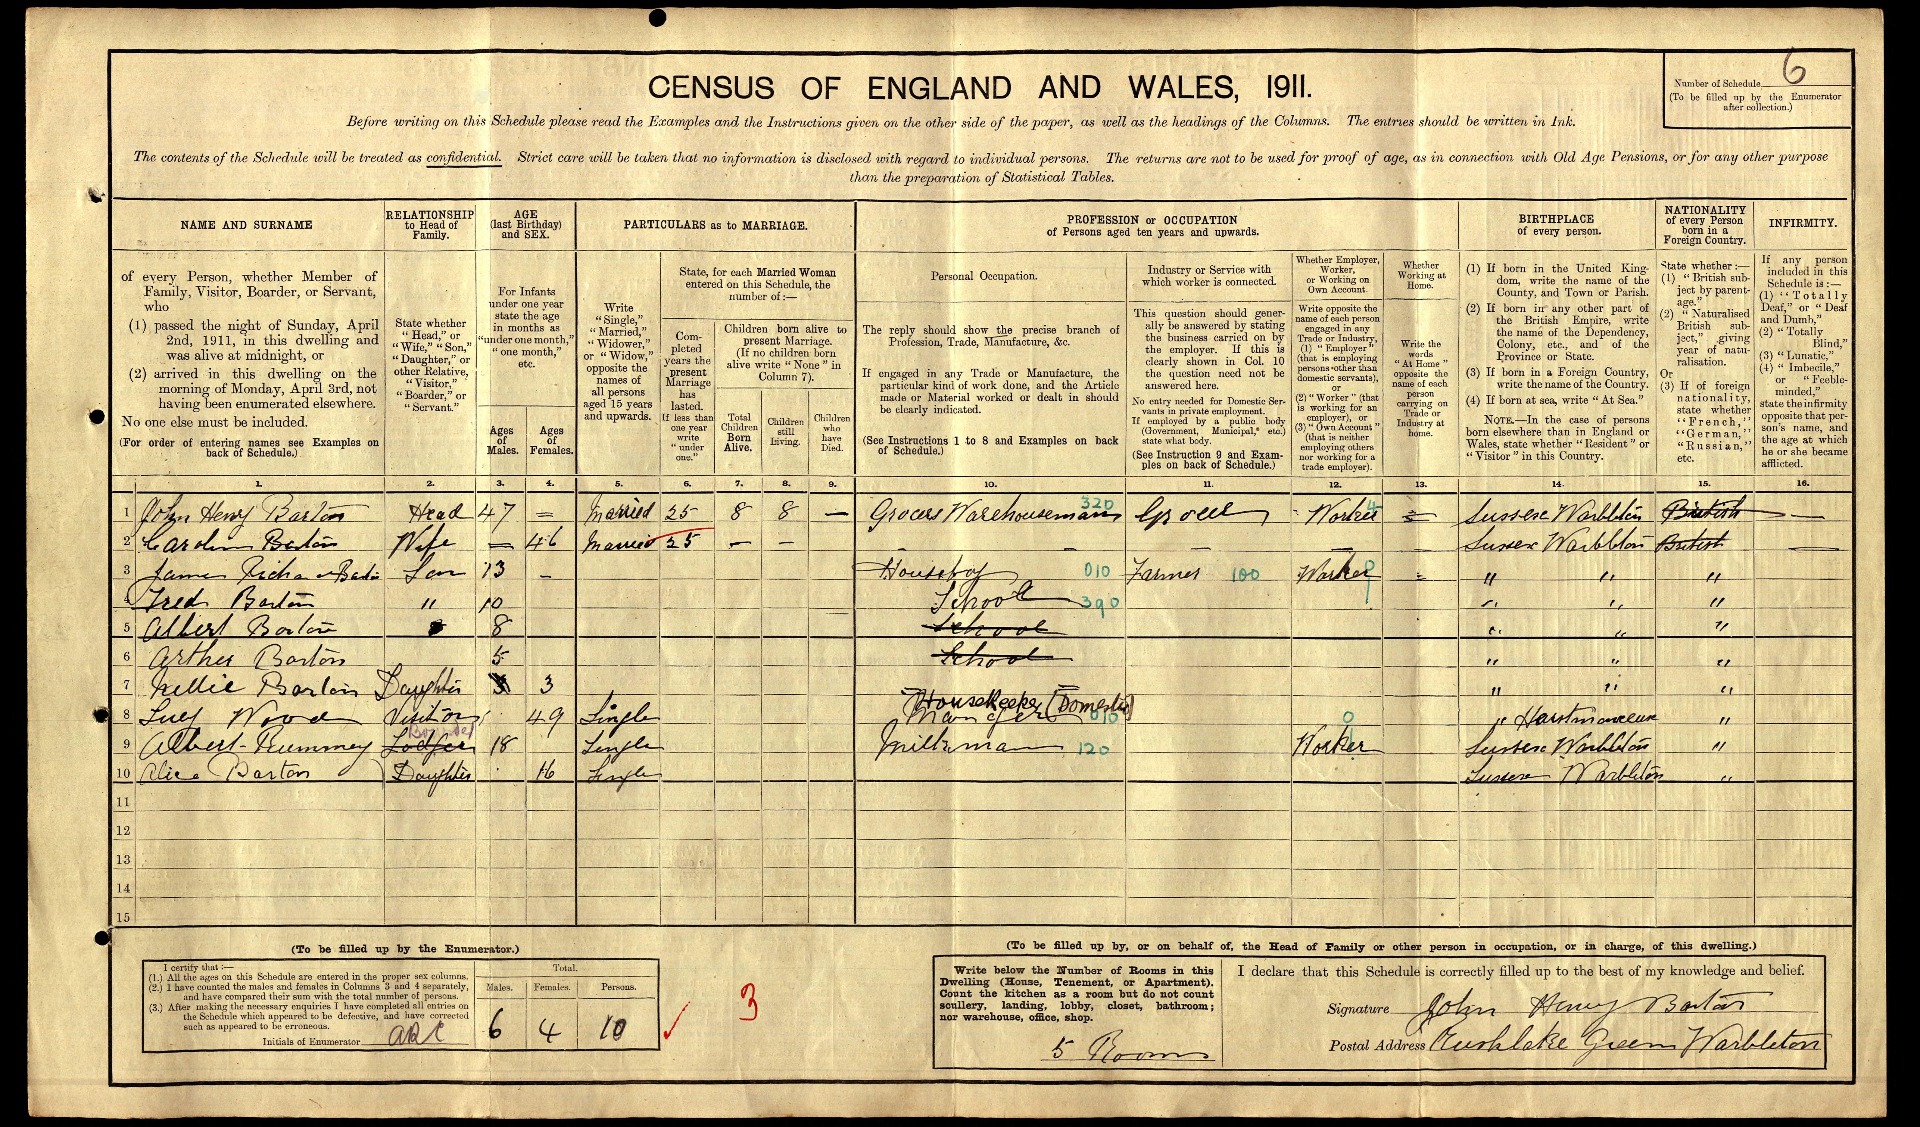 CENSUS OF ENGLAND AND WALES, 1911.
Number of Schedule 6
(To be filled up by the Enumerator after collection.)
Before writing on this Schedule please read the Examples and the Instructions given on the other side of the paper, as well as the headings of the Columns. The entries should be written in Ink.
The contents of the Schedule will be treated as confidential. Strict care will be taken that no information is disclosed with regard to individual persons. The returns are not to be used for proof of age, as in connection with Old Age Pensions, or for any other purpose
than the preparation of Statistical Tables.
NAME AND SURNAME
of every Person, whether Member of
Family, Visitor, Boarder, or Servant,
who
(1) passed the night of Sunday, April
2nd, 1911, in this dwelling and
was alive at midnight, or
(2) arrived in this dwelling on the
morning of Monday, April 3rd, not
having been enumerated elsewhere.
No one else must be included.
(For order of entering names see Examples on
back of Schedule.)
RELATIONSHIP
to Head of
Family.
State whether
"Head," or
"Wife," "Son,"
"Daughter," or
other Relative,
"Visitor,"
"Boarder," or
"Servant."
AGE
(last Birthday)
and SEX.
For Infants
under one year
state the age
in months as
"under one month,"
"one month,"
etc.
Ages
of
Males.
Ages
of
Females.
PARTICULARS as to MARRIAGE.
Write
"Single,"
"Married,"
"Widower,"
or "Widow,"
opposite the
names of
all persons
aged 15 years
and upwards.
State, for each Married Woman
entered on this Schedule, the
number of:—
Completed
years the
present
Marriage
has
lasted.
If less than
one year
write
"under
one."
Children born alive to
present Marriage.
(If no children born
alive write "None" in
Column 7).
Total
Children
Born
Alive.
Children
still
Living.
Children
who
have
Died.
PROFESSION or OCCUPATION
of Persons aged ten years and upwards.
Personal Occupation.
The reply should show the precise branch of
Profession, Trade, Manufacture, &c.
If engaged in any Trade or Manufacture, the
particular kind of work done, and the Article
made or Material worked or dealt in should
be clearly indicated.
(See Instructions 1 to 8 and Examples on back
of Schedule.)
Industry or Service with
which worker is connected.
This question should gener-
ally be answered by stating
the business carried on by
the employer. If this is
clearly shown in Col. 10
the question need not be
answered here.
or
No entry needed for Domestic Ser-
vants in private employment.
If employed by a public body
(Government, Municipal, etc.)
state what body.
(See Instruction 9 and Exam-
ples on back of Schedule.)
Whether Employer,
Worker,
or Working on
Own Account.
Write opposite the
name of each person
engaged in any
Trade or Industry,
(1) "Employer"
(that is employing
persons other than
domestic servants),
or
(2) "Worker" (that
is working for an
employer), or
(3) "Own Account"
(that is neither
employing others
nor working for a
trade employer).
Whether
Working at
Home.
Write the
words
"At Home"
opposite the
name of each
person
carrying on
Trade or
Industry at
home.
BIRTHPLACE
of every person.
(1) If born in the United King-
dom, write the name of the
County, and Town or Parish.
(2) If born in any other part of
the British Empire, write
the name of the Dependency,
Colony, etc., and of the
Province or State.
(3) If born in a Foreign Country,
write the name of the Country.
(4) If born at sea, write "At Sea."
NOTE.—In the case of persons
born elsewhere than in England or
Wales, state whether "Resident" or
"Visitor" in this Country.
NATIONALITY
of every Person
born in a
Foreign Country.
State whether:—
(1) "British sub-
ject by parent-
age."
(2) "Naturalised
British sub-
ject," giving
year of natu-
ralisation.
Or
(3) If of foreign
nationality,
state whether
"French,"
"German,"
"Russian,"
etc.
INFIRMITY.
If any person
included in this
Schedule is:—
(1) "Totally
Deaf," or "Deaf
and Dumb,"
(2) "Totally
Blind,"
(3) "Lunatic,"
(4) "Imbecile,"
or "Feeble-
minded,"
state the infirmity
opposite that per-
son's name, and
the age at which
he or she became
afflicted.
1. 2. 3. 4. 5. 6. 7. 8. 9. 10. 11. 12. 13. 14. 15. 16.
1 John Henry Barton Head 47 – Married 25 8 8 – Grocers Warehouseman 320 Grocer Worker Sussex Warbleton British –
2 Caroline Barton Wife – 46 Married 25 – – – – – Sussex Warbleton British –
3 James Richard Barton Son 13 – Houseboy 010 Farmer 100 Worker " " "
4 Fred Barton " 10 School 390 " " "
5 Albert Barton 8 School " " "
6 Arther Barton 5 School " " "
7 Nellie Barton Daughter 3 " " "
8 Lucy Wood Visitor 49 Single Housekeeper (Domestic) " Herstmonceux "
9 Albert Rummey Lodger Boarder 18 Single Milkman 120 Worker Sussex Warbleton "
10 Alice Barton Daughter 16 Single Sussex Warbleton "
11
12
13
14
15
(To be filled up by the Enumerator.)
I certify that:—
(1.) All the ages on this Schedule are entered in the proper sex columns.
(2.) I have counted the males and females in Columns 3 and 4 separately,
and have compared their sum with the total number of persons.
(3.) After making the necessary enquiries I have completed all entries on
the Schedule which appeared to be defective, and have corrected
such as appeared to be erroneous.
Initials of Enumerator
Total.
Males. Females. Persons.
6 4 10
3
(To be filled up by, or on behalf of, the Head of Family or other person in occupation, or in charge, of this dwelling.)
Write below the Number of Rooms in this
Dwelling (House, Tenement, or Apartment).
Count the kitchen as a room but do not count
scullery, landing, lobby, closet, bathroom;
nor warehouse, office, shop.
5 Rooms
I declare that this Schedule is correctly filled up to the best of my knowledge and belief.
Signature John Henry Barton
Postal Address Rushlake Green Warbleton